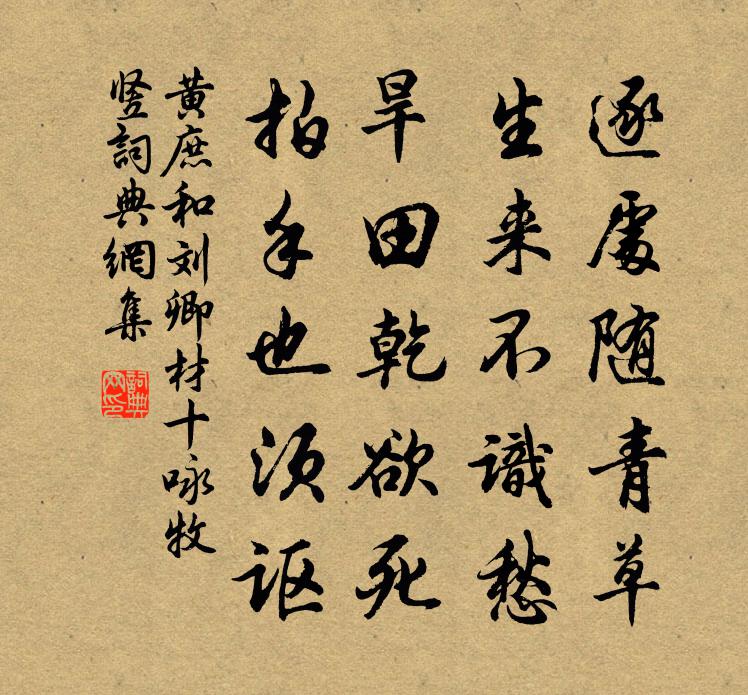 逐處随青草
生来不識愁
旱田乾欲死
拍手也须讴
黄庶和刘卿材十咏牧
竖詞典網集
詞典网印